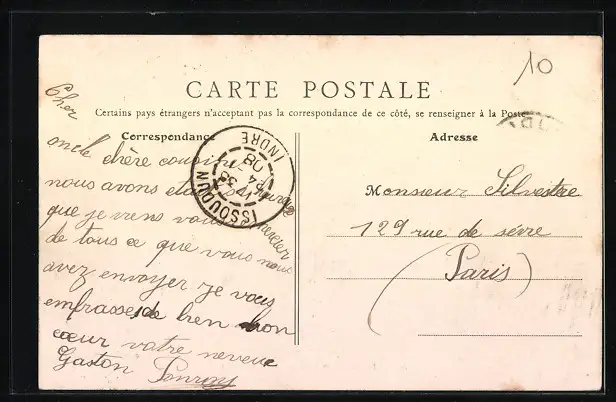 10
CARTE POSTALE
Certains pays étrangers n'acceptant pas la correspondance de ce côté, se renseigner à la Poste
Correspondance
Adresse
Cher
oncle chère cousine
nous avons
que je viens vous remercier
de tous ce que vous nous
avez envoyer Je vous
embrasse de bien bon
cœur votre neveue
Gaston
ISSOUDUN
INDRE
08
Monsieur Silvestre
129 rue de sévre
(Paris)